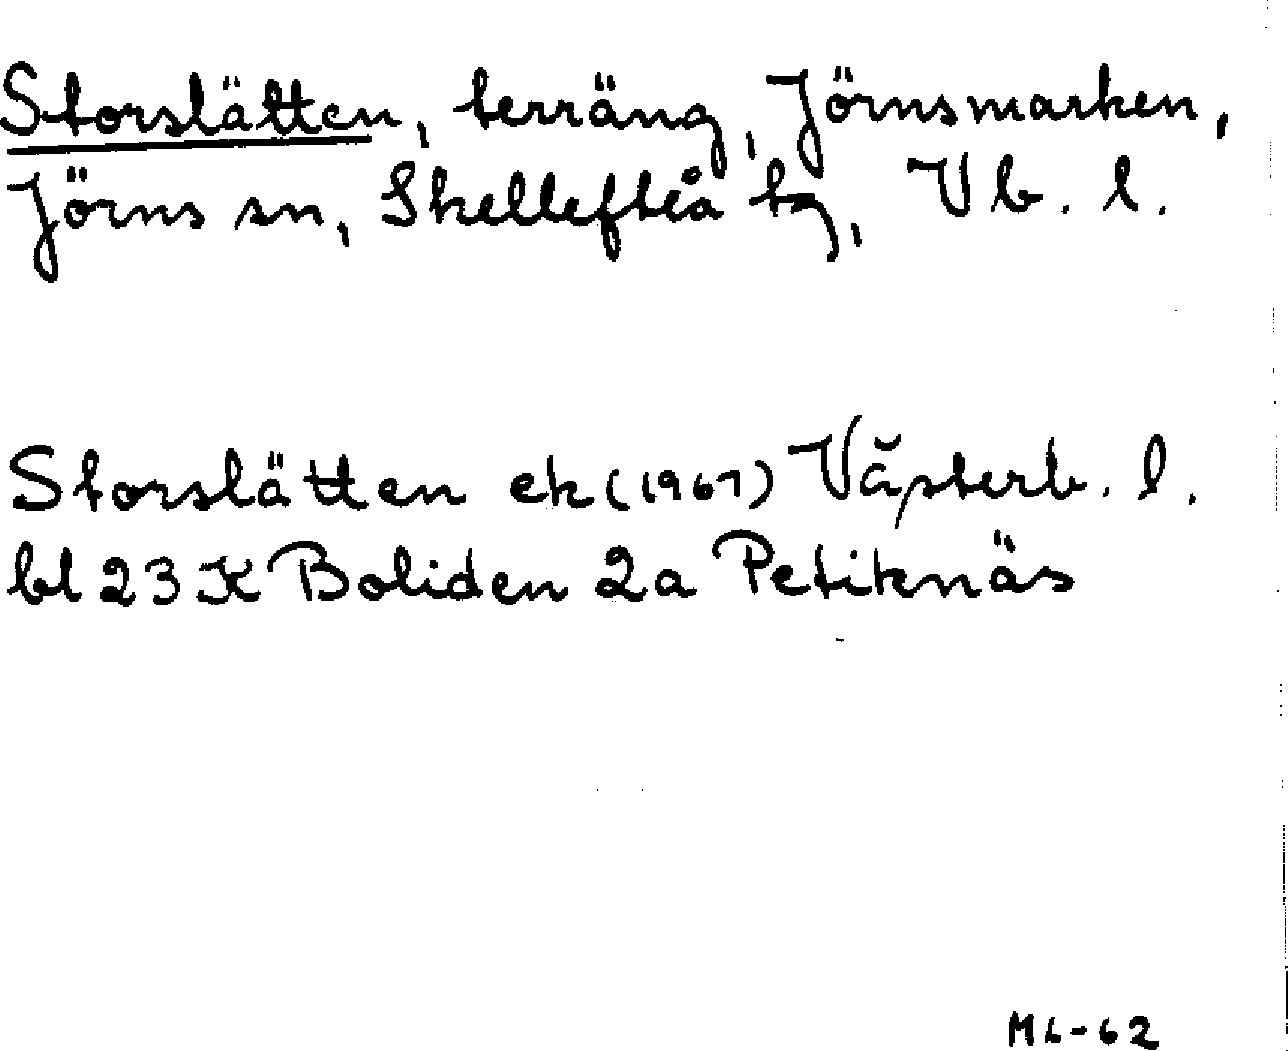 Storslätten, terräng, Jörnsmarken,
Jörns sn, Skellefteå tg, Vb. l.
Storslätten ek (1967) Västerb. l.
bl 23 K Boliden 2a Petiknäs
M6-62